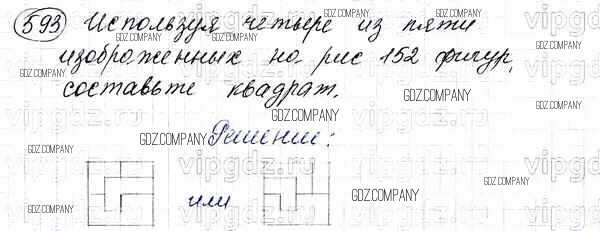 593 Используя четыре из пяти
изображенных на рис 152 фигур,
составьте квадрат.
Решение:
или
GDZ.COMPANY
GDZ.COMPANY
GDZ.COMPANY
GDZ.COMPANY
GDZ.COMPANY
GDZ.COMPANY
GDZ.COMPANY
GDZ.COMPANY
GDZ.COMPANY
GDZ.COMPANY
GDZ.COMPANY
vipgdz.ru
vipgdz.ru
vipgdz.ru